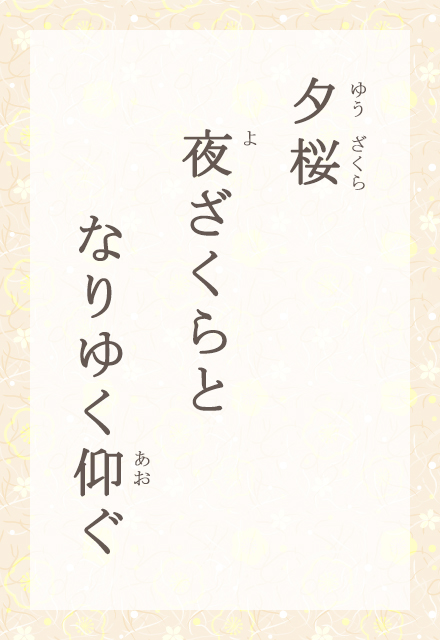 夕桜
ゆう ざくら
夜ざくらと
よ
なりゆく仰ぐ
あお